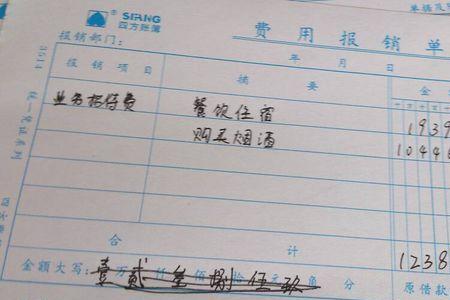 单据及
SIRNG
四方账簿
费用报销单
报销部门：
年 月 日
3514
报销项目
摘要
金
业务招待费
餐饮住宿
1939
购买烟酒
1044
统一凭证系列
合计
1238
金额大写：
万
佰
拾
元
角
分
壹贰叁捌伍玖
原借款